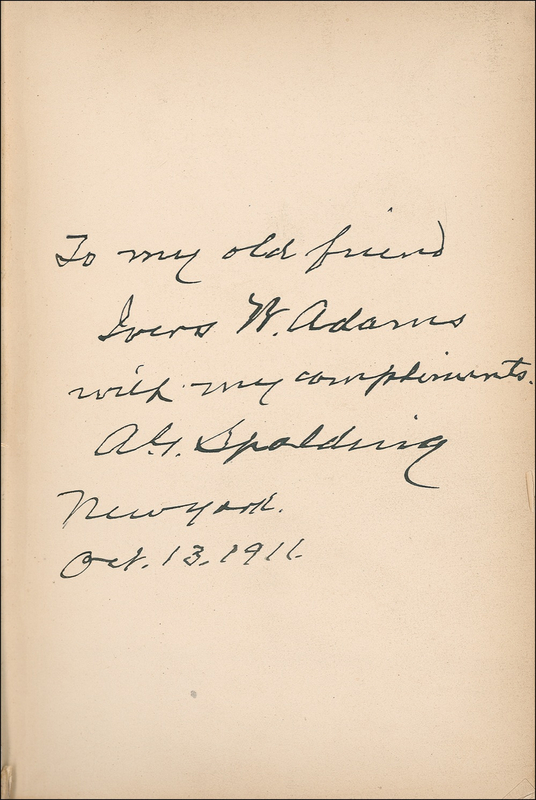 To my old friend
Ivers W. Adams
with my compliments.
A.G. Spalding
New York.
Oct. 13. 1911.